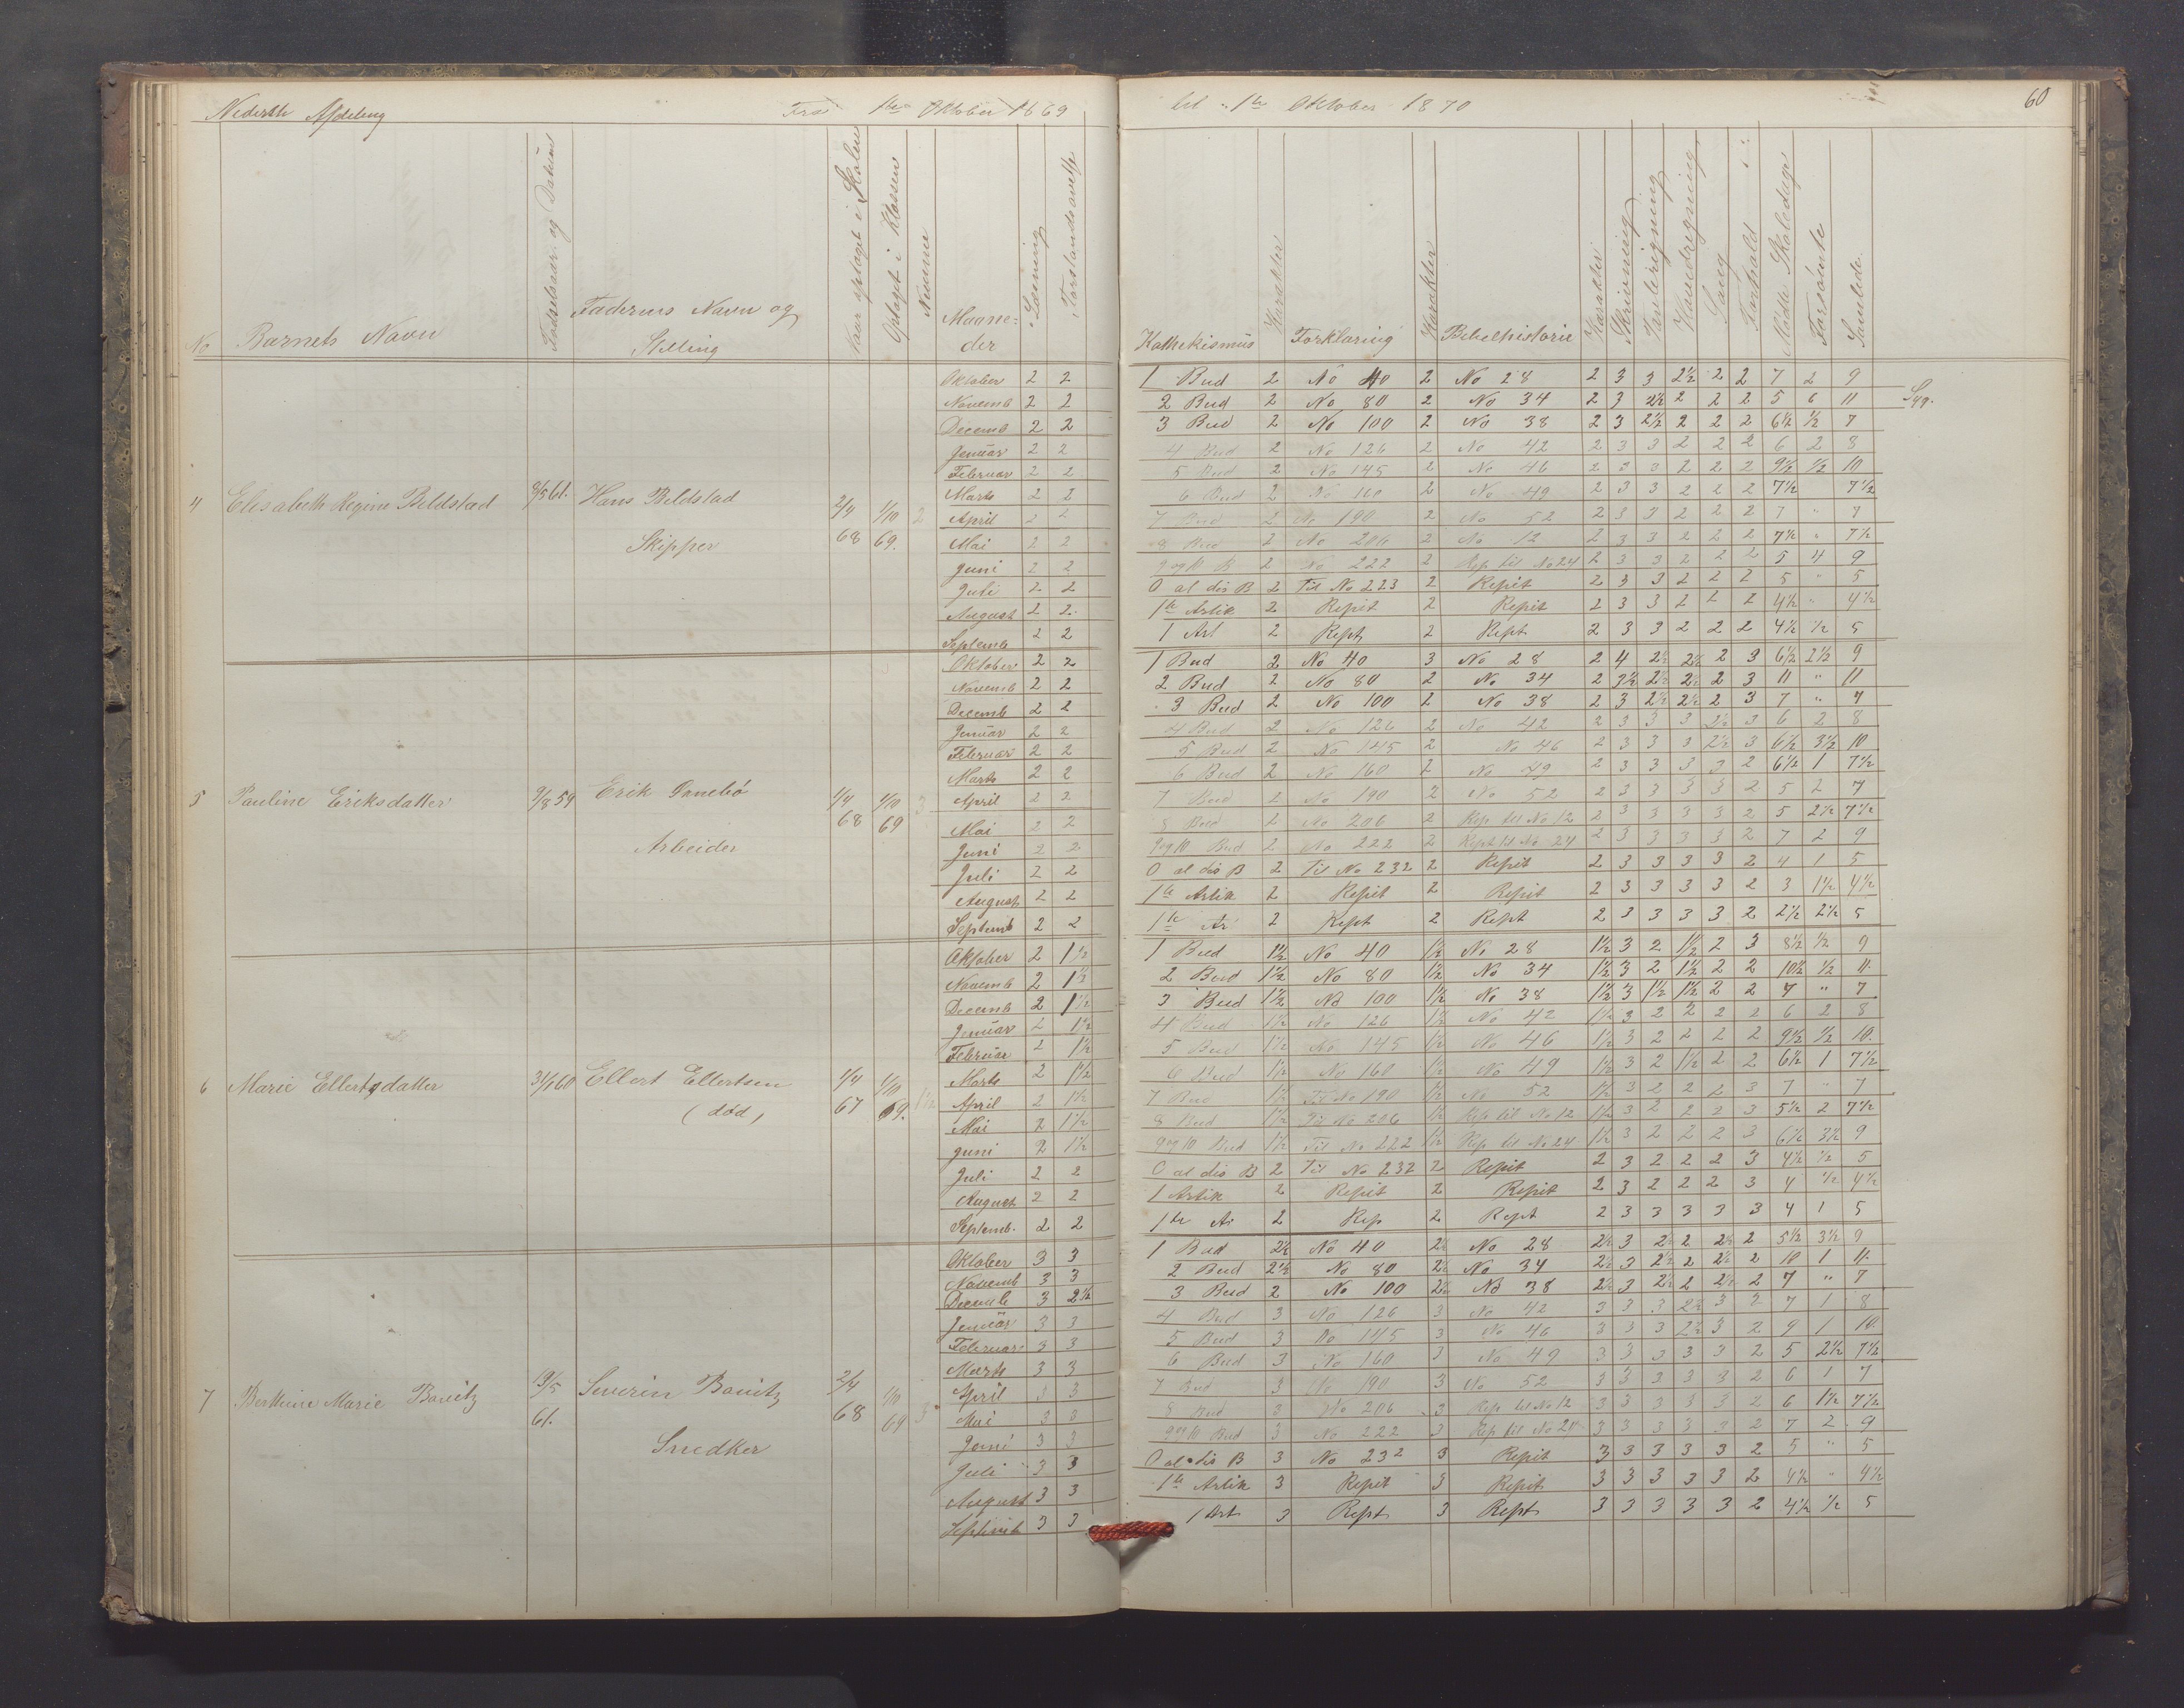 Nederste Afdeling Fra 1ste Oktober 1869 til 1te Oktober 1870 60
No Barnets Navn Fødselsaar og Datum Faderens Navn og Stilling Naar optaget i Skolen Optaget i Klassen Numer Maaneder Læsning Forstandsøvelse Kathekismus Karakter Forklaring Karakter Bibelhistorie Karakter Skrivning Tavleregning Hovedregning Sang Forhold Mødte Skoledage Forsømte Samlede
Oktober 2 2 1 Bud 2 No 40 2 No 28 2 3 3 2½ 2 2 7 2 9
Novemb 2 2 2 Bud 2 No 80 2 No 34 2 3 2½ 2 2 2 5 6 11 Syg.
Decemb 2 2 3 Bud 2 No 100 2 No 38 2 3 2½ 2 2 2 6½ ½ 7
Januar 2 2 4 Bud 2 No 126 2 No 42 2 3 3 2 2 2 6 2 8
Februar 2 2 5 Bud 2 No 145 2 No 46 2 3 3 2 2 2 9½ ½ 10
4 Elisabeth Regine Beldstad 8/5 61. Hans Beldstad Skipper 2/4 68 1/10 69. 2
Marts 2 2 6 Bud 2 No 160 2 No 49 2 3 3 2 2 2 7½ 7½
April 2 2 7 Bud 2 No 190 2 No 52 2 3 3 2 2 2 7 " 7
Mai 2 2 8 Bud 2 No 206 2 No 12 2 3 3 2 2 2 7½ " 7½
Juni 2 2 9 og 10 B 2 No 222 2 Rep til No 24 2 3 3 2 2 2 5 4 9
Juli 2 2 O al dis B 2 Til No 223 2 Repit 2 3 3 2 2 2 5 " 5
August 2 2 1te Artik 2 Repit 2 Repit 2 3 3 2 2 2 4½ " 4½
Septemb 2 2 1 Art 2 Rept 2 Rept 2 3 3 2 2 2 4½ ½ 5
Oktober 2 2 1 Bud 2 No 40 3 No 28 2 4 2½ 2½ 2 3 6½ 2½ 9
Novemb 2 2 2 Bud 2 No 80 2 No 34 2 3½ 2½ 2½ 2 3 11 " 11
Decemb 2 2 3 Bud 2 No 100 2 No 38 2 3 2½ 2½ 2 3 7 " 7
Januar 2 2 4 Bud 2 No 126 2 No 42 2 3 3 3 2½ 3 6 2 8
Februar 2 2 5 Bud 2 No 145 2 No 46 2 3 3 3 2½ 3 6½ 3½ 10
Marts 2 2 6 Bud 2 No 160 2 No 49 2 3 3 3 3 2 6½ 1 7½
5 Pauline Eriksdatter 9/8 59 Erik Arbeider 1/4 68 1/10 69 3
April 2 2 7 Bud 2 No 190 2 No 52 2 3 3 3 3 2 5 2 7
Mai 2 2 8 Bud 2 No 206 2 Rep til No 12 2 3 3 3 3 2 5 2½ 7½
Juni 2 2 9 og 10 Bud 2 No 222 2 Rept til No 24 2 3 3 3 3 2 7 2 9
Juli 2 2 O al dis B 2 Til No 232 2 Repit 2 3 3 3 3 2 4 1 5
August 2 2 1te Artik 2 Repit 2 Repit 2 3 3 3 3 2 3 1½ 4½
Septemb 2 2 1te Ar 2 Rept 2 Rept 2 3 3 3 3 2 2½ 2½ 5
Oktober 2 1½ 1 Bud 1½ No 40 1½ No 28 1½ 3 2 1½ 2 3 8½ ½ 9
Novemb 2 1½ 2 Bud 1½ No 80 1½ No 34 1½ 3 2 1½ 2 2 10½ ½ 11.
Decemb 2 1½ 3 Bud 1½ No 100 1½ No 38 1½ 3 1½ 1½ 2 2 7 " 7
Januar 2 1½ 4 Bud 1½ No 126 1½ No 42 1½ 3 2 2 2 2 6 2 8
Februar 2 1½ 5 Bud 1½ No 145 1½ No 46 1½ 3 2 2 2 2 9½ ½ 10.
6 Marie Ellertsdatter 31/1 60 Ellert Ellertsen (død) 1/4 67 1/10 69. 1½
Marts 2 1½ 6 Bud 1½ No 160 1½ No 49 1½ 3 2 1½ 2 2 6½ 1 7½
April 2 1½ 7 Bud 1½ Til No 190 1½ No 52 1½ 3 2 2 2 3 7 " 7
Mai 2 1½ 8 Bud 1½ Til No 206 1½ Rep til No 12 1½ 3 2 2 2 3 5½ 2 7½
Juni 2 1½ 9 og 10 Bud 1½ Til No 222 1½ Rep til No 24 1½ 3 2 2 2 3 6½ 3½ 9
Juli 2 2 O al dis B 2 Til No 232 2 Repit 2 3 2 2 2 3 4½ ½ 5
August 2 2 1 Artik 2 Repit 2 Repit 2 3 2 2 2 3 4 ½ 4½
Septemb. 2 2 1te Ar 2 Rep 2 Rept 2 3 3 3 3 3 4 1 5
Oktober 3 3 1 Bud 2½ No 40 2½ No 28 2½ 3 2½ 2 2½ 2 5½ 3½ 9
Novemb 3 3 2 Bud 2½ No 80 2½ No 34 2½ 3 2½ 2 2½ 2 10 1 11.
Decemb 3 2½ 3 Bud 2 No 100 2½ No 38 2½ 3 2½ 2 2½ 2 7 " 7
Januar 3 3 4 Bud 3 No 126 3 No 42 3 3 3 2½ 3 2 7 1 8
Februar 3 3 5 Bud 3 No 145 3 No 46 3 3 3 2½ 3 2 9 1 10.
Marts 3 3 6 Bud 3 No 160 3 No 49 3 3 3 3 3 2 5 2½ 7½
7 Marie 19/5 61. Severin Snedker 2/4 68 1/10 69 3
April 3 3 7 Bud 3 No 190 3 No 52 3 3 3 3 3 2 6 1 7
Mai 3 3 8 Bud 3 No 206 3 Rep til No 12 3 3 3 3 3 2 6 1½ 7½
Juni 3 3 9 og 10 Bud 3 No 222 3 Rep til No 24 3 3 3 3 3 2 7 2 9
Juli 3 3 O al dis B 3 No 232 3 Repit 3 3 3 3 3 2 5 " 5
August 3 3 1te Artik 3 Repit 3 Repit 3 3 3 3 3 2 4½ " 4½
Septemb 3 3 1 Art 3 Rept 3 Rept 3 3 3 3 3 2 4½ ½ 5